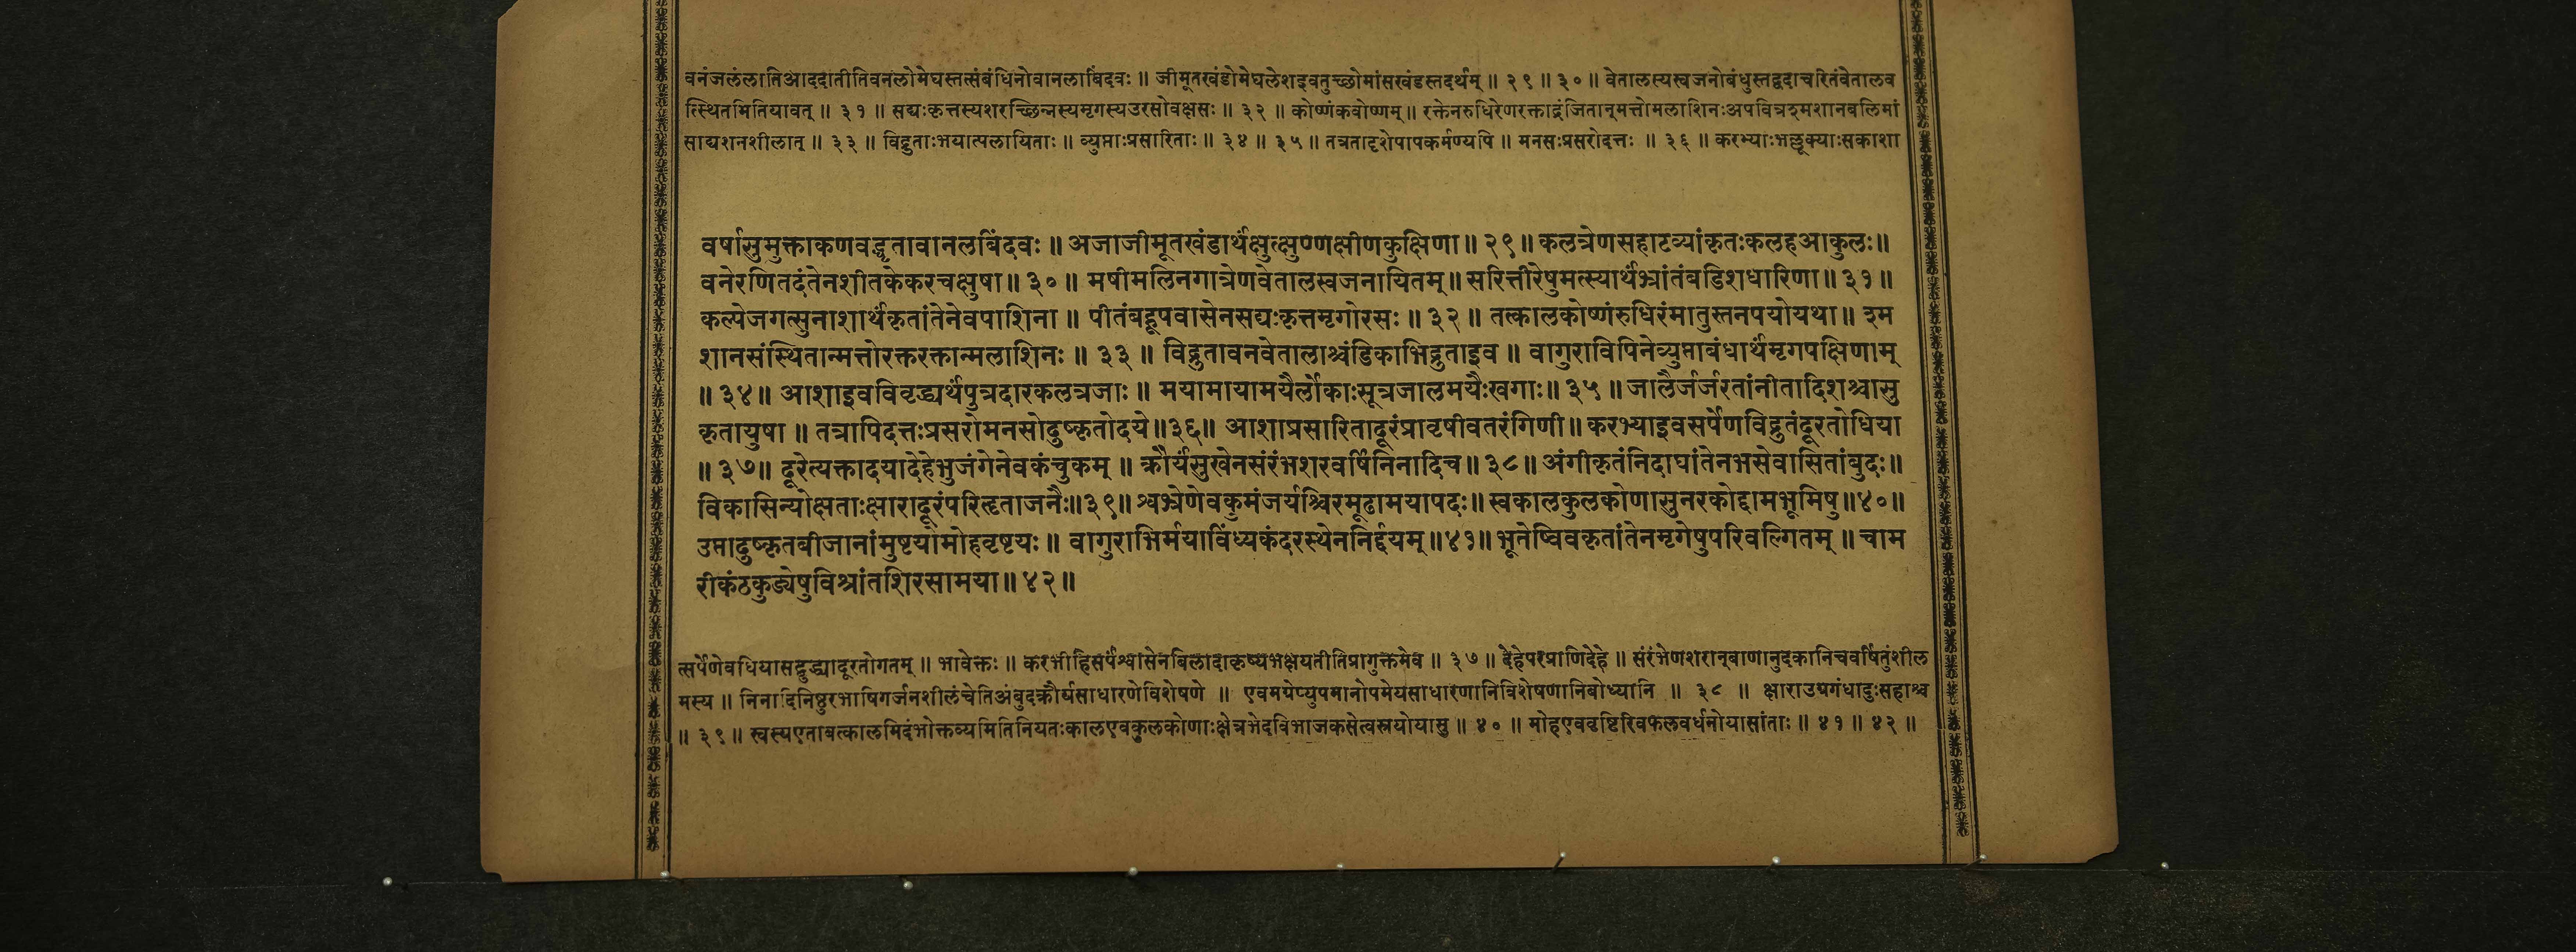 वनंजलंलातिआददातीतिवनलोमेघस्तत्संबंधिनोवानलाबिंदवः ॥ जीमूतखंडोमेघलेशइवतुच्छोमांसखंडस्तदर्थम् ॥ २९ ॥ ३० ॥ वेतालस्यस्वजनोबंधुस्तद्वदाचरितंवेतालव
त्स्थितमितियावत् ॥ ३१ ॥ सद्यःकृत्तस्यशरच्छिन्नस्यमृगस्यउरसोवक्षसः ॥ ३२ ॥ कोष्णंकवोष्णम् ॥ रक्तेनरुधिरेणरक्ताद्रंजितान्मत्तोमलाशिनःअपवित्रश्मशानबलिमां
साद्यशनशीलात् ॥ ३३ ॥ विद्रुताःभयात्पलायिताः ॥ व्युप्ताःप्रसारिताः ॥ ३४ ॥ ३५ ॥ तत्रतादृशेपापकर्मण्यपि ॥ मनसःप्रसरोदत्तः ॥ ३६ ॥ करभ्याःभल्लूक्याःसकाशा
वर्षासुमुक्ताकणवद्धृतावानलबिंदवः ॥ अजाजीमूतखंडार्थंक्षुत्क्षुण्णक्षीणकुक्षिणा ॥ २९ ॥ कलत्रेणसहाटव्यांकृतःकलहआकुलः ॥
वनेरणितदंतेनशीतकेकरचक्षुषा ॥ ३० ॥ मषीमलिनगात्रेणवेतालस्वजनायितम् ॥ सरित्तीरेषुमत्स्यार्थंभ्रांतंबडिशधारिणा ॥ ३१ ॥
कल्पेजगत्सुनाशार्थंकृतांतेनेवपाशिना ॥ पीतंबहूपवासेनसद्यःकृत्तमृगोरसः ॥ ३२ ॥ तत्कालकोष्णंरुधिरंमातुस्तनपयोयथा ॥ श्म
शानसंस्थितान्मत्तोरक्तरक्तान्मलाशिनः ॥ ३३ ॥ विद्रुतावनवेतालाश्चंडिकाभिद्रुताइव ॥ वागुराविपिनेव्युप्ताबंधार्थंमृगपक्षिणाम्
॥ ३४ ॥ आशाइवविवृद्ध्यर्थंपुत्रदारकलत्रजाः ॥ मयामायामयैर्लोकाःसूत्रजालमयैःखगाः ॥ ३५ ॥ जालैर्जर्जरतांनीतादिशश्चासु
कृतायुषा ॥ तत्रापिदत्तःप्रसरोमनसोदुष्कृतोदये ॥३६॥ आशाप्रसारितादूरंप्रावृषीवतरंगिणी ॥ करभ्याइवसर्पेणविद्रुतंदूरतोधिया
॥ ३७ ॥ दूरेत्यक्तादयादेहेभुजंगेनेवकंचुकम् ॥ क्रौर्यंसुखेनसंरंभशरवर्षिनिनादिच ॥ ३८ ॥ अंगीकृतंनिदाघांतेनभसेवासितांबुदः ॥
विकासिन्योक्षताःक्षारादूरंपरिहृताजनैः ॥३९॥ श्वभ्रेणेवकुमंजर्यश्चिरमूढामयापदः ॥ स्वकालकुलकोणासुनरकोद्दामभूमिषु ॥४०॥
उप्तादुष्कृतबीजानांमुष्टयोमोहवृष्टयः ॥ वागुराभिर्मयाविंध्यकंदरस्थेननिर्द्दयम् ॥४१॥ भूतेष्विवकृतांतेनमृगेषुपरिवल्गितम् ॥ चाम
रीकंठकुड्येषुविश्रांतशिरसामया ॥ ४२ ॥
त्सर्पेणेवधियासद्बुद्ध्यादूरतोगतम् ॥ भावेक्तः ॥ करभीहिसर्पंश्वासेनबिलादाकृष्यभक्षयतीतिप्रागुक्तमेव ॥ ३७ ॥ देहेपरप्राणिदेहे ॥ संरंभेणशरान्बाणानुदकानिचवर्षितुंशील
मस्य ॥ निनादिनिष्ठुरभाषिगर्जनशीलंचेतिअंबुदक्रौर्यसाधारणेविशेषणे ॥ एवमग्रेप्युपमानोपमेयसाधारणानिविशेषणानिबोध्यानि ॥ ३८ ॥ क्षाराउग्रगंधादुःसहाश्च
॥ ३९ ॥ स्वस्यएतावत्कालमिदंभोक्तव्यमितिनियतःकालएवकुलकोणाःक्षेत्रभेदविभाजकसेत्वस्रयोयासु ॥ ४० ॥ मोहएववृष्टिरिवफलवर्धनोयासांताः ॥ ४१ ॥ ४२ ॥